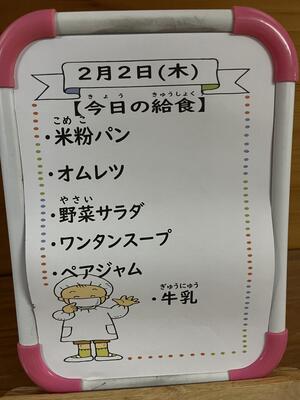 2月2日(木)
きょう きゅうしょく
【今日の給食】
こめこ
・米粉パン
・オムレツ
やさい
・野菜サラダ
・ワンタンスープ
・ペアジャム
ぎゅうにゅう
・牛乳